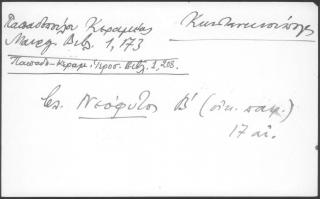 Παπαδοπούλου Κεραμέως
Μαυρ. Βιβ. 1, 173
Κωνσταντινούπολις
Παπαδ.-Κεραμ. Ιεροσ. Βιβλ. 1, 208.
Επ. Νεόφυτος Β' (οικ. πατρ.)
17 αι.